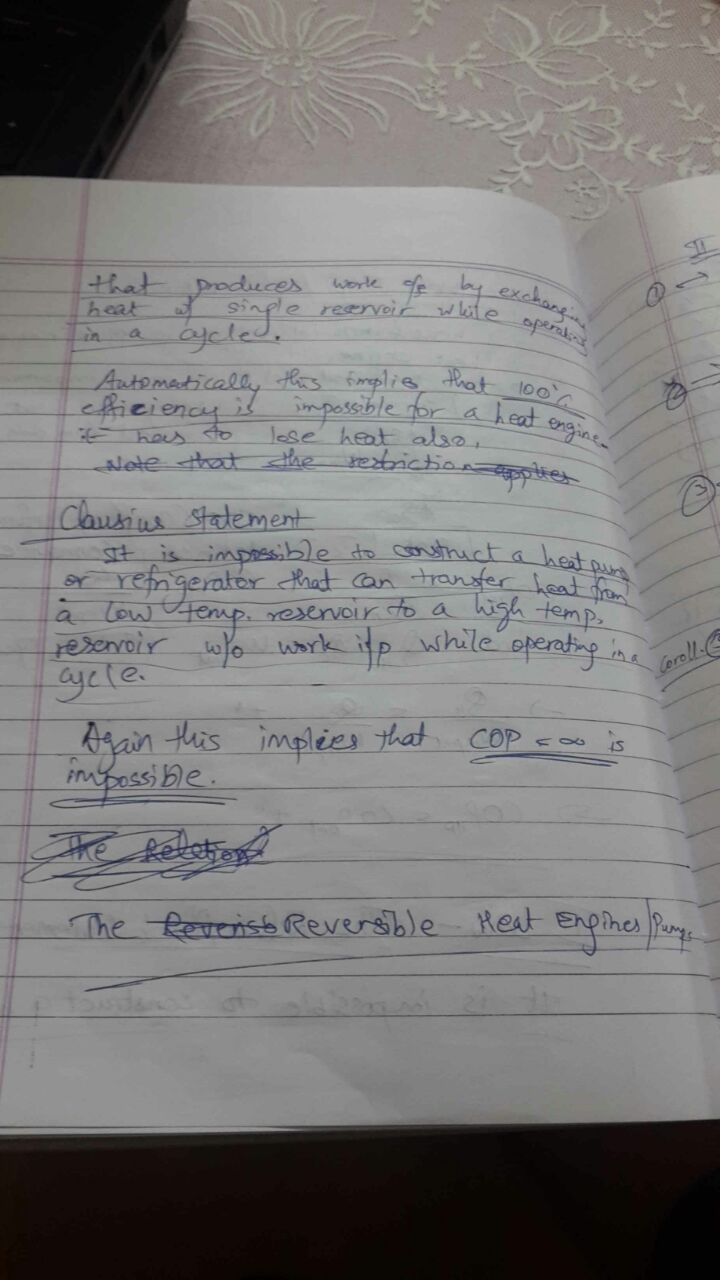 that produces work o/p by exchanging
heat w/ single reservoir while operating
in a cycle.
Automatically this implies that 100%
efficiency is impossible for a heat engine.
it has to lose heat also.
Note that the restriction applies
Clausius Statement
It is impossible to construct a heat pump
or refrigerator that can transfer heat from
a low temp. reservoir to a high temp.
reservoir w/o work i/p while operating in a
cycle.
Again this implies that COP = ∞ is
impossible.
The Relation
The Reversib Reversible Heat Engines/Pumps
II
①
②
③
Coroll.